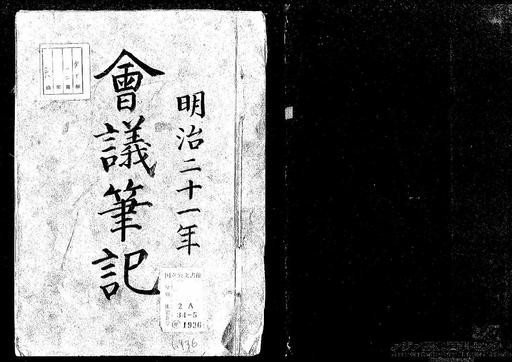 明治二十一年
會議筆記
国立公文書館
2A
34-5
1926